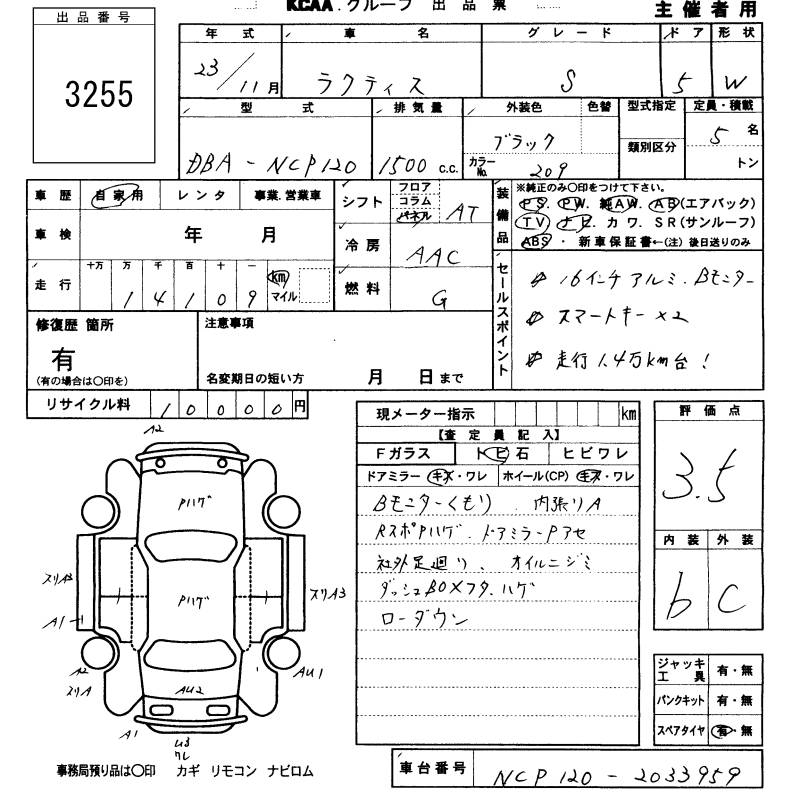 KCAA.グループ 出品票
主催者用
出品番号
3255
年式 車名 グレード ドア 形状
23/11月 ラクティス S 5 W
型式 排気量 外装色 色替 型式指定 定員・積載
DBA-NCP120 1500 c.c. ブラック カラーNo. 209 類別区分 5名 トン
車歴 自家用 レンタ 事業.営業車
車検 年 月
走行 十万 万 千 百 十 一
14109 km マイル
シフト フロア コラム パネル AT
冷房 AAC
燃料 G
装備品
※純正のみ○印をつけて下さい。
PS. PW. 純AW. AB(エアバック)
TV ナビ. カワ. SR(サンルーフ)
ABS・新車保証書←(注)後日送りのみ
セールスポイント
16インチアルミ.Bモニター
スマートキー×2
走行1.4万km台!
修復歴 箇所
有
(有の場合は○印を)
注意事項
名変期日の短い方 月 日まで
リサイクル料 10000円
現メーター指示 km
【査定員記入】
Fガラス トビ石 ヒビワレ
ドアミラー キズ・ワレ ホイール(CP) キズ・ワレ
Bモニターくもり、内張りA
RスポPハゲ.ドアミラーPアセ
社外足廻り、オイルニジミ
ダッシュBOXフタ.ハゲ
ローダウン
評価点
3.5
内装 外装
b C
ジャッキ工具 有・無
パンクキット 有・無
スペアタイヤ 有・無
A2
Pハゲ
Pハゲ
スリA3
スリA3
A1
A2
スリA
AU1
AU2
A1
U3
ワレ
事務局預り品は○印 カギ リモコン ナビロム
車台番号 NCP120-2033959